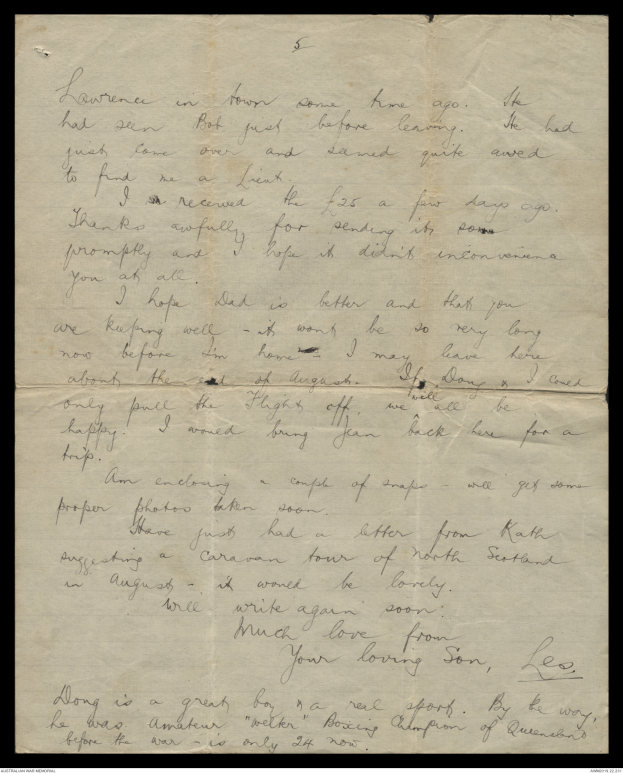 5
Lawrence in town some time ago. He
had seen Bob just before leaving. He had
just come over and seemed quite awed
to find me a Lieut.
I received the £25 a few days ago.
Thanks awfully for sending it so
promptly and I hope it didn't inconvenience
you at all.
I hope Dad is better and that you
are keeping well - it wont be so very long
now before I'm home - I may leave here
about the end of August. If Doug & I could
only pull the Flight off, we will all be
happy. I would bring Jean back here for a
trip.
Am enclosing a couple of snaps - will get some
proper photos taken soon.
Have just had a letter from Kath
suggesting a caravan tour of North Scotland
in August - it would be lovely.
Will write again soon.
Much love from
Your loving Son, Les.
Doug is a great boy & a real sport. By the way,
he was Amateur "Welter" Boxing Champion of Queensland
before the war - is only 24 now.
AUSTRALIAN WAR MEMORIAL